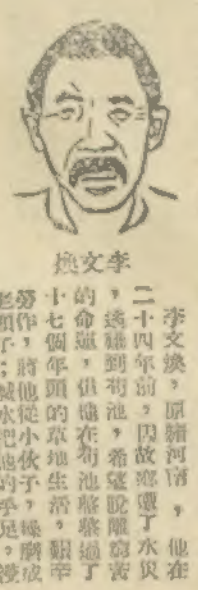 李文煥
李文煥，原籍河南，他在
二十四年前，因故鄉遭了水災
，逃難到苟池，希望脫離窮苦
的命運，但他在苟池整整過了
十七個年頭的草地生活。艱辛
勞作，將他從小伙子，操磨成
老頭子；鹹水把他的手足，浸